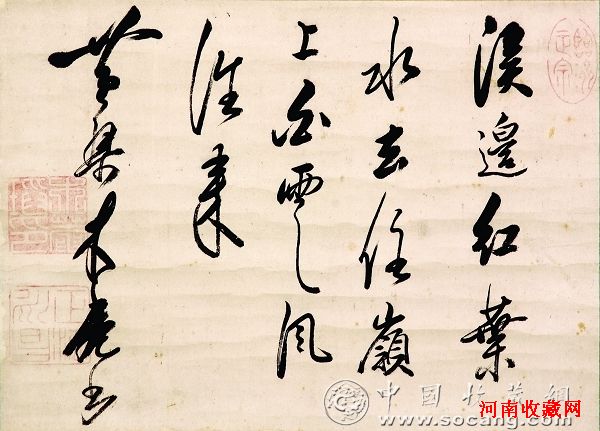 臨濟正宗
溪邊紅葉
水去住嶺
上白雲風
往来
黄檗木菴書
中国收藏网
www.socang.com
河南收藏网